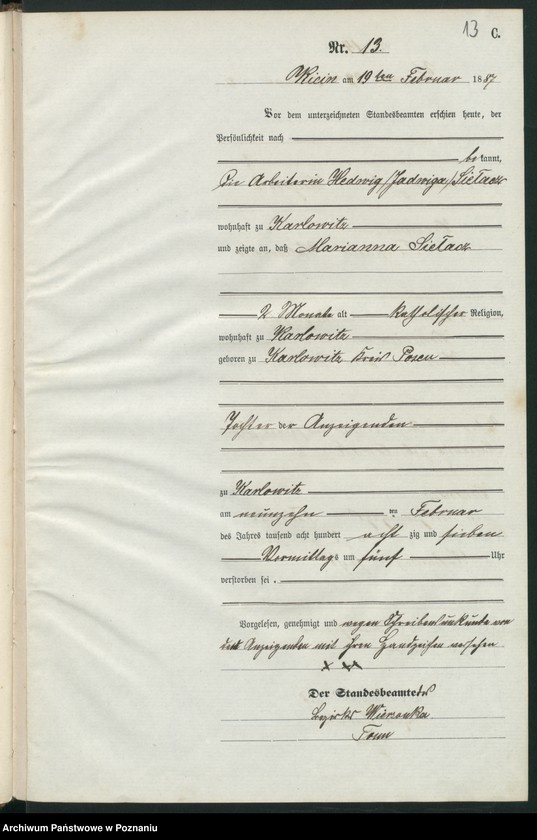 13 C.
Nr. 13.
Kicin am 19ten Februar 1887
Vor dem unterzeichneten Standesbeamten erschien heute, der
Persönlichkeit nach
bekannt,
die Arbeiterin Hedwig /Jadwiga/ Sietacz
wohnhaft zu Karlowitz
und zeigte an, daß Marianna Sietacz
2 Monate alt katholischer Religion,
wohnhaft zu Karlowitz
geboren zu Karlowitz Kreis Posen
Tochter der Anzeigenden
zu Karlowitz
am neunzehn ten Februar
des Jahres tausend acht hundert achtzig und sieben
Vormittags um fünf Uhr
verstorben sei.
Vorgelesen, genehmigt und wegen Schreibensunkunde von
der Anzeigenden mit ihrem Handzeichen versehen
x xx
Der Standesbeamte des
Bezirks Wierzonka
Archiwum Państwowe w Poznaniu